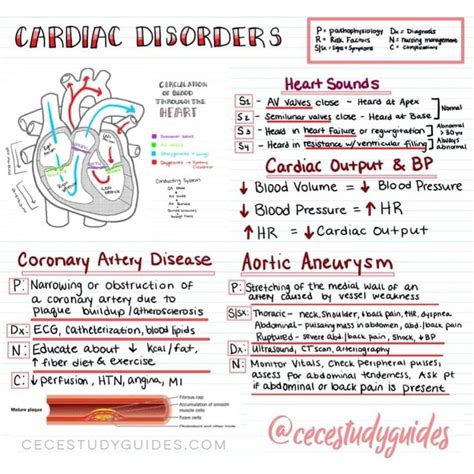 CARDIAC DISORDERS
P = pathophysiology Dx = Diagnosis
R = Risk Factors N = Nursing management
S/Sx = Signs + Symptoms C = Complications
CIRCULATION
OF BLOOD
THROUGH THE
HEART
Conducting System
Heart Sounds
S1 - AV valves close - Heard at Apex
S2 - Semilunar valves close - Heard at Base
Normal
S3 - Heard in heart failure or regurgitation
Abnormal
> 30yo
S4 - Heard in resistance w/ ventricular filling
Always
Abnormal
Cardiac Output & BP
↓ Blood Volume = ↓ Blood Pressure
↓ Blood Pressure = ↑ HR
↑ HR = ↓ Cardiac Output
Coronary Artery Disease
P: Narrowing or obstruction of
a coronary artery due to
plaque buildup/atherosclerosis
Dx: ECG, catheterization, blood lipids
N: Educate about ↓ kcal/fat,
↑ fiber diet & exercise
C: ↓ perfusion, HTN, angina, MI
Mature plaque
Fibrous cap
Accumulation of smooth
muscle cells
Foam cells
Cluster of other fat and cells
CECESTUDYGUIDES.COM
Aortic Aneurysm
P: Stretching of the medial wall of an
artery caused by vessel weakness
S/Sx: Thoracic - neck, shoulder, ↓back pain, ↑HR, dyspnea
Abdominal - pulsating mass in abdomen, abd./back pain
Ruptured - severe abd./back pain, shock, ↓BP
Dx: Ultrasound, CT scan, arteriography
N: Monitor Vitals, Check peripheral pulses,
assess for abdominal tenderness, Ask pt
if abdominal or back pain is present
@cecestudyguides